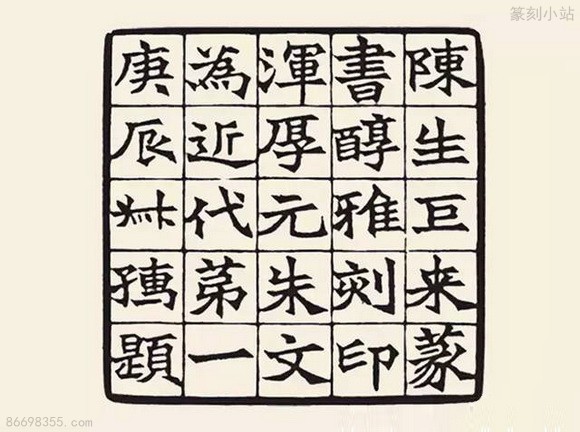 篆刻小站
陳生巨来篆
書醇雅刻印
渾厚元朱文
為近代苐一
庚辰叔孺題
86698355.com